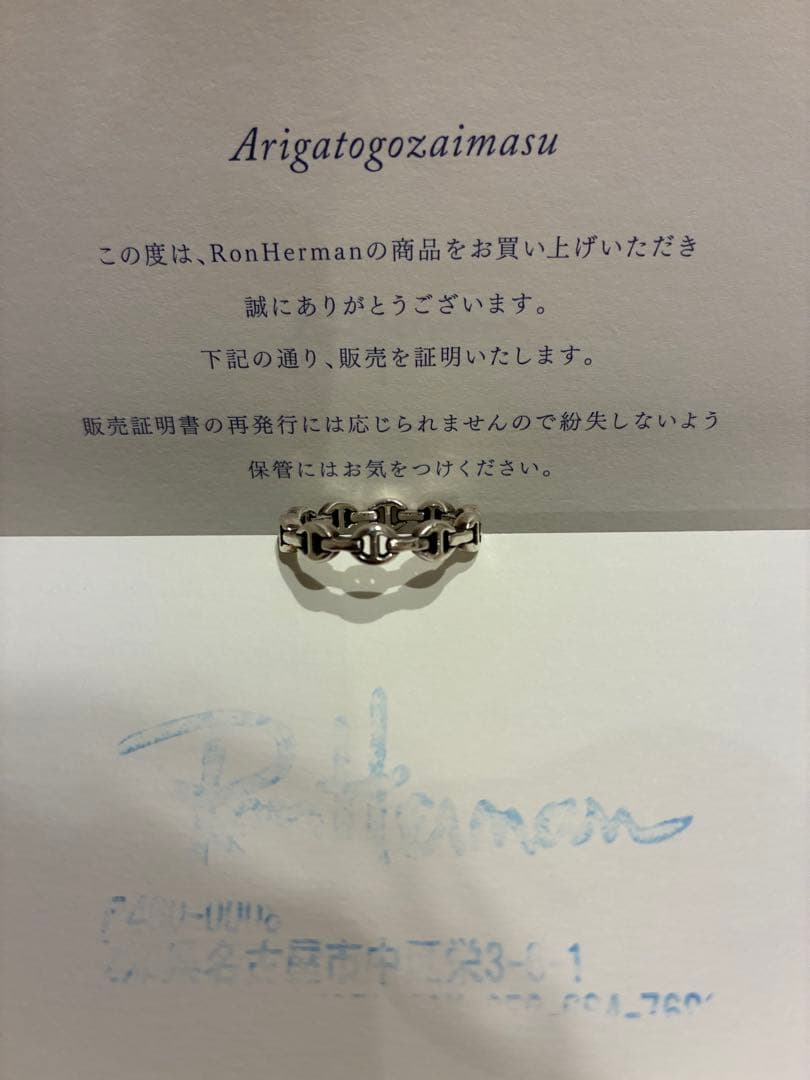 Arigatogozaimasu
この度は、RonHermanの商品をお買い上げいただき
誠にありがとうございます。
下記の通り、販売を証明いたします。
販売証明書の再発行には応じられませんので紛失しないよう
保管にはお気をつけください。
Ron Herman
名古屋市中区栄3-6-1